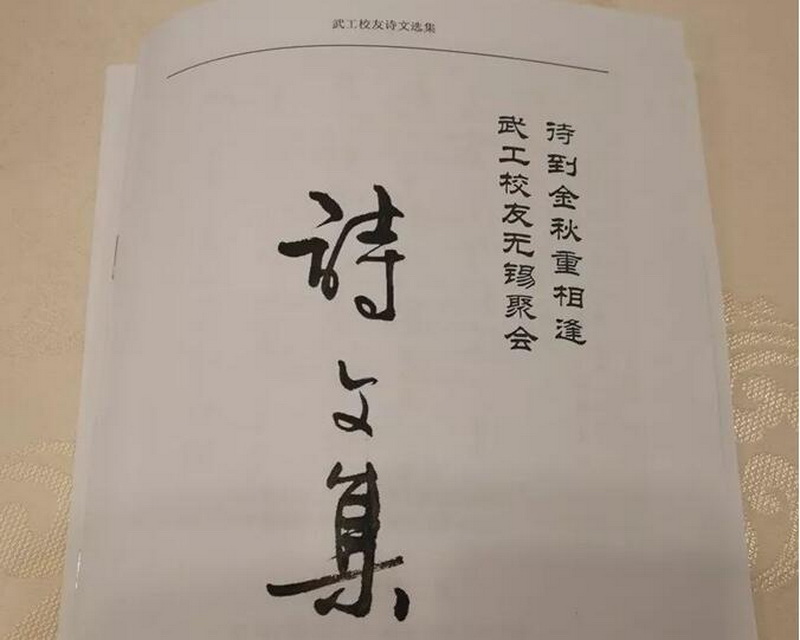 武工校友诗文选集
待到金秋重相逢
武工校友无锡聚会
詩文集